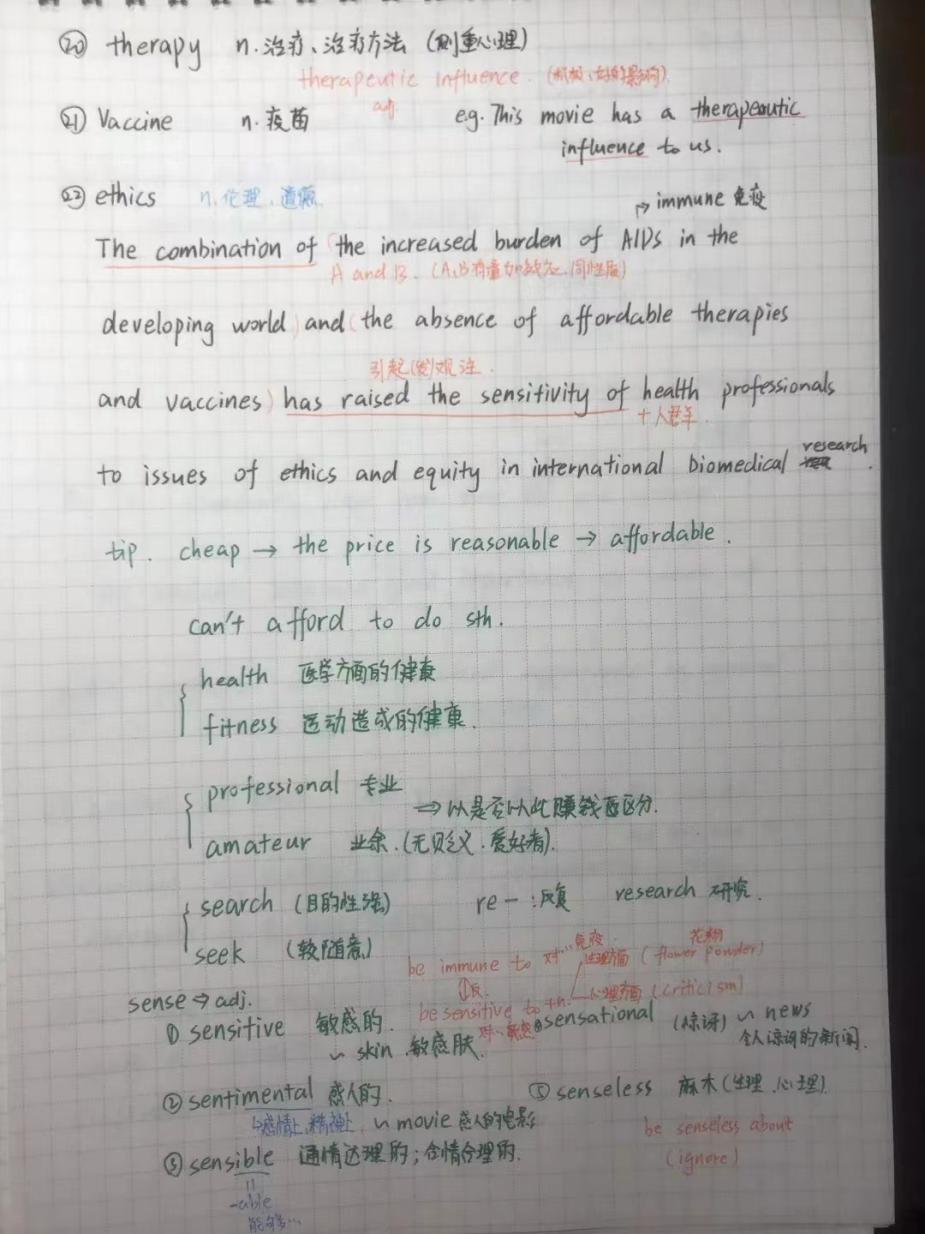 ⑳ therapy n.治疗、治疗方法 (侧重心理)
therapeutic influence. (积极、好的影响)
adj
㉑ Vaccine n.疫苗 e.g. This movie has a therapeutic
influence to us.
㉒ ethics n.伦理、道德
→ immune 免疫
The combination of (the increased burden of AIDs in the
A and B. (A、B 同性质)
developing world) and (the absence of affordable therapies
引起(发)关注.
and vaccines) has raised the sensitivity of health professionals
+人群等.
to issues of ethics and equity in international biomedical research.
tip. cheap → the price is reasonable → affordable.
can't afford to do sth.
health 医学方面的健康
fitness 运动造成的健康.
professional 专业
⇒ 以是否以此赚钱而区分.
amateur 业余.(无贬义.爱好者).
search (目的性强) re-:反复 research 研究.
seek (较随意)
be immune to 对…免疫.
生理方面 (flower powder) 花粉
反.
be sensitive to +n. 心理方面 (criticism)
对…敏感
sense → adj.
① sensitive 敏感的.
~ skin 敏感肤.
④ sensational (惊讶) ~ news
令人惊讶的新闻.
② sentimental 感人的. ⑤ senseless 麻木(生理.心理)
↳感情上,精神上. ~ movie 感人的电影
be senseless about
(ignore)
③ sensible 通情达理的;合情合理的.
=
-able
能够…